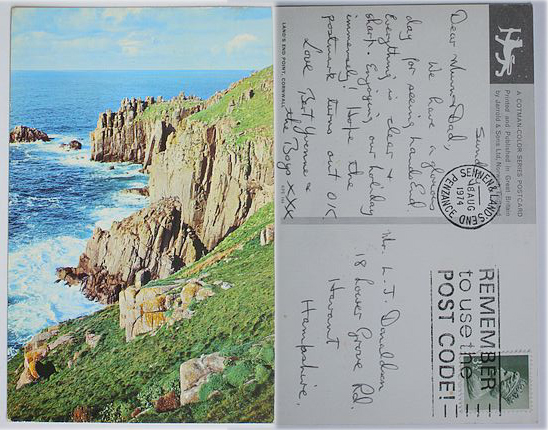 LAND'S END POINT, CORNWALL
A COTMAN-COLOR SERIES POSTCARD
Printed and Published in Great Britain
by Jarrold & Sons Ltd, Norwich
Sunday
Dear Mum & Dad,
We have a glorious
day for seeing Lands End.
Everything is clear &
sharp. Enjoying our holiday
immensely! Hope the
postmark turns out OK
Love Bert Yvonne &
the Boys XXX
SENNEN & LANDS END
16 AUG
1974
PENZANCE
REMEMBER
to use the
POST CODE!
Mr. L. J. Donaldson
18 Lower Grove Rd.
Havant
Hampshire.